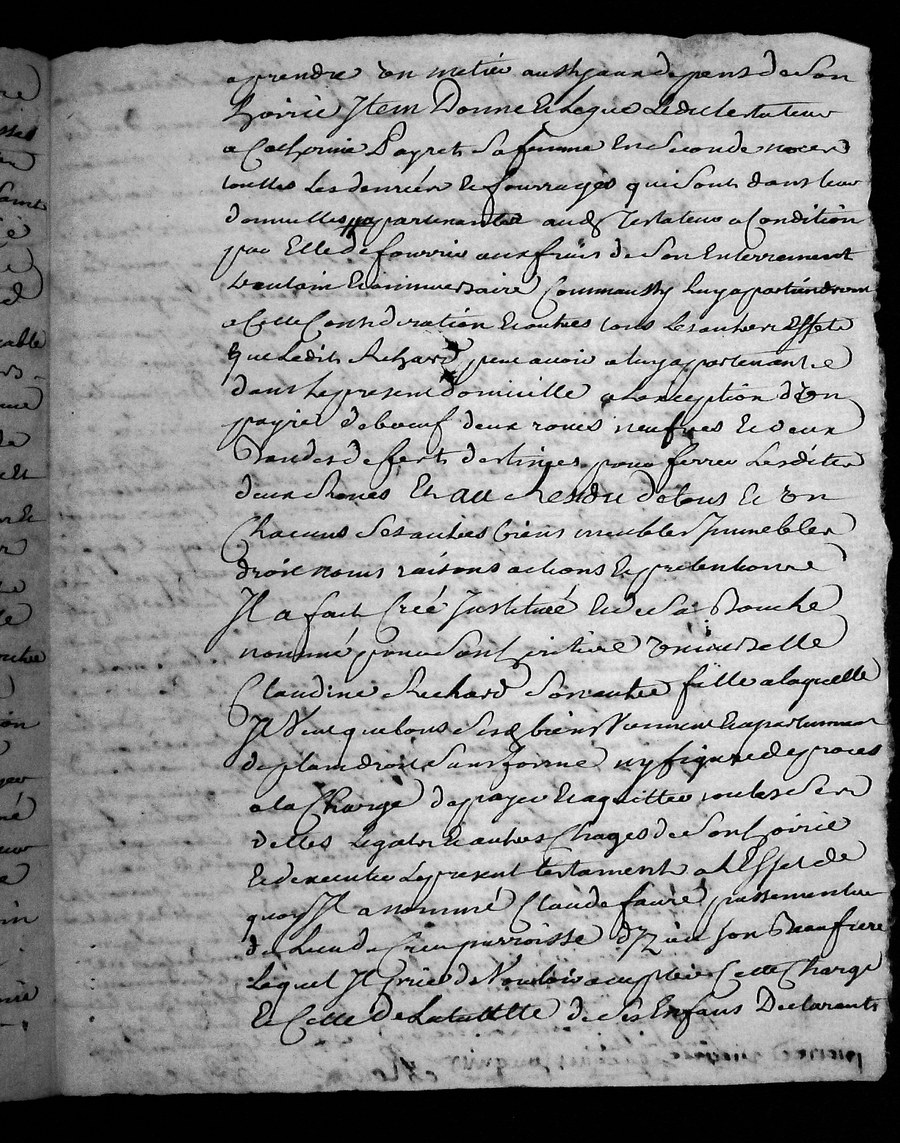 aprendre un metier aussy aux depens de son
hoirie Item Donne et legue ledit testateur
a Catherine Payret sa femme en seconde noces
touttes les denrées et fourrages qui sont dans leur
domicille appartenantes aud testateur a Condition
par Elle de fournir aux frais de son Enterrement
et anniversaire Comm aussy luy apartiendront
a Cette Consideration et outres tous les autres Effets
que ledit Richard peut avoir a luy appartenant
dans le present domicille a lexception d'un
payre de bœuf deux roues neufves et deux
bandes de fert destinées pour ferrer lesdites
deux Roues Et au Residu de tous et un
Chacuns ses autres biens meubles Immeubles
droit noms raisons actions et pretentions
Il a fait Créé Institué et de sa Bouche
nommé pour son heritiere universelle
Claudine Richard son autre fille a laquelle
Il Veut que tous sesd biens Viennent et apartiennent
de plain droit sans forme ny figure de proces
a la Charge de payer et aquitter toutes ses
dettes legats et autres Charges de son hoirie
et dexecuter le present testament a L'Effet de
quoy Il a nommé Claude faure passementier
du lieu de parroisse son Beaufrere
lequel Il prie de Vouloir accepter Cette Charge
et Celle de la tutelle de ses Enfans Declarant